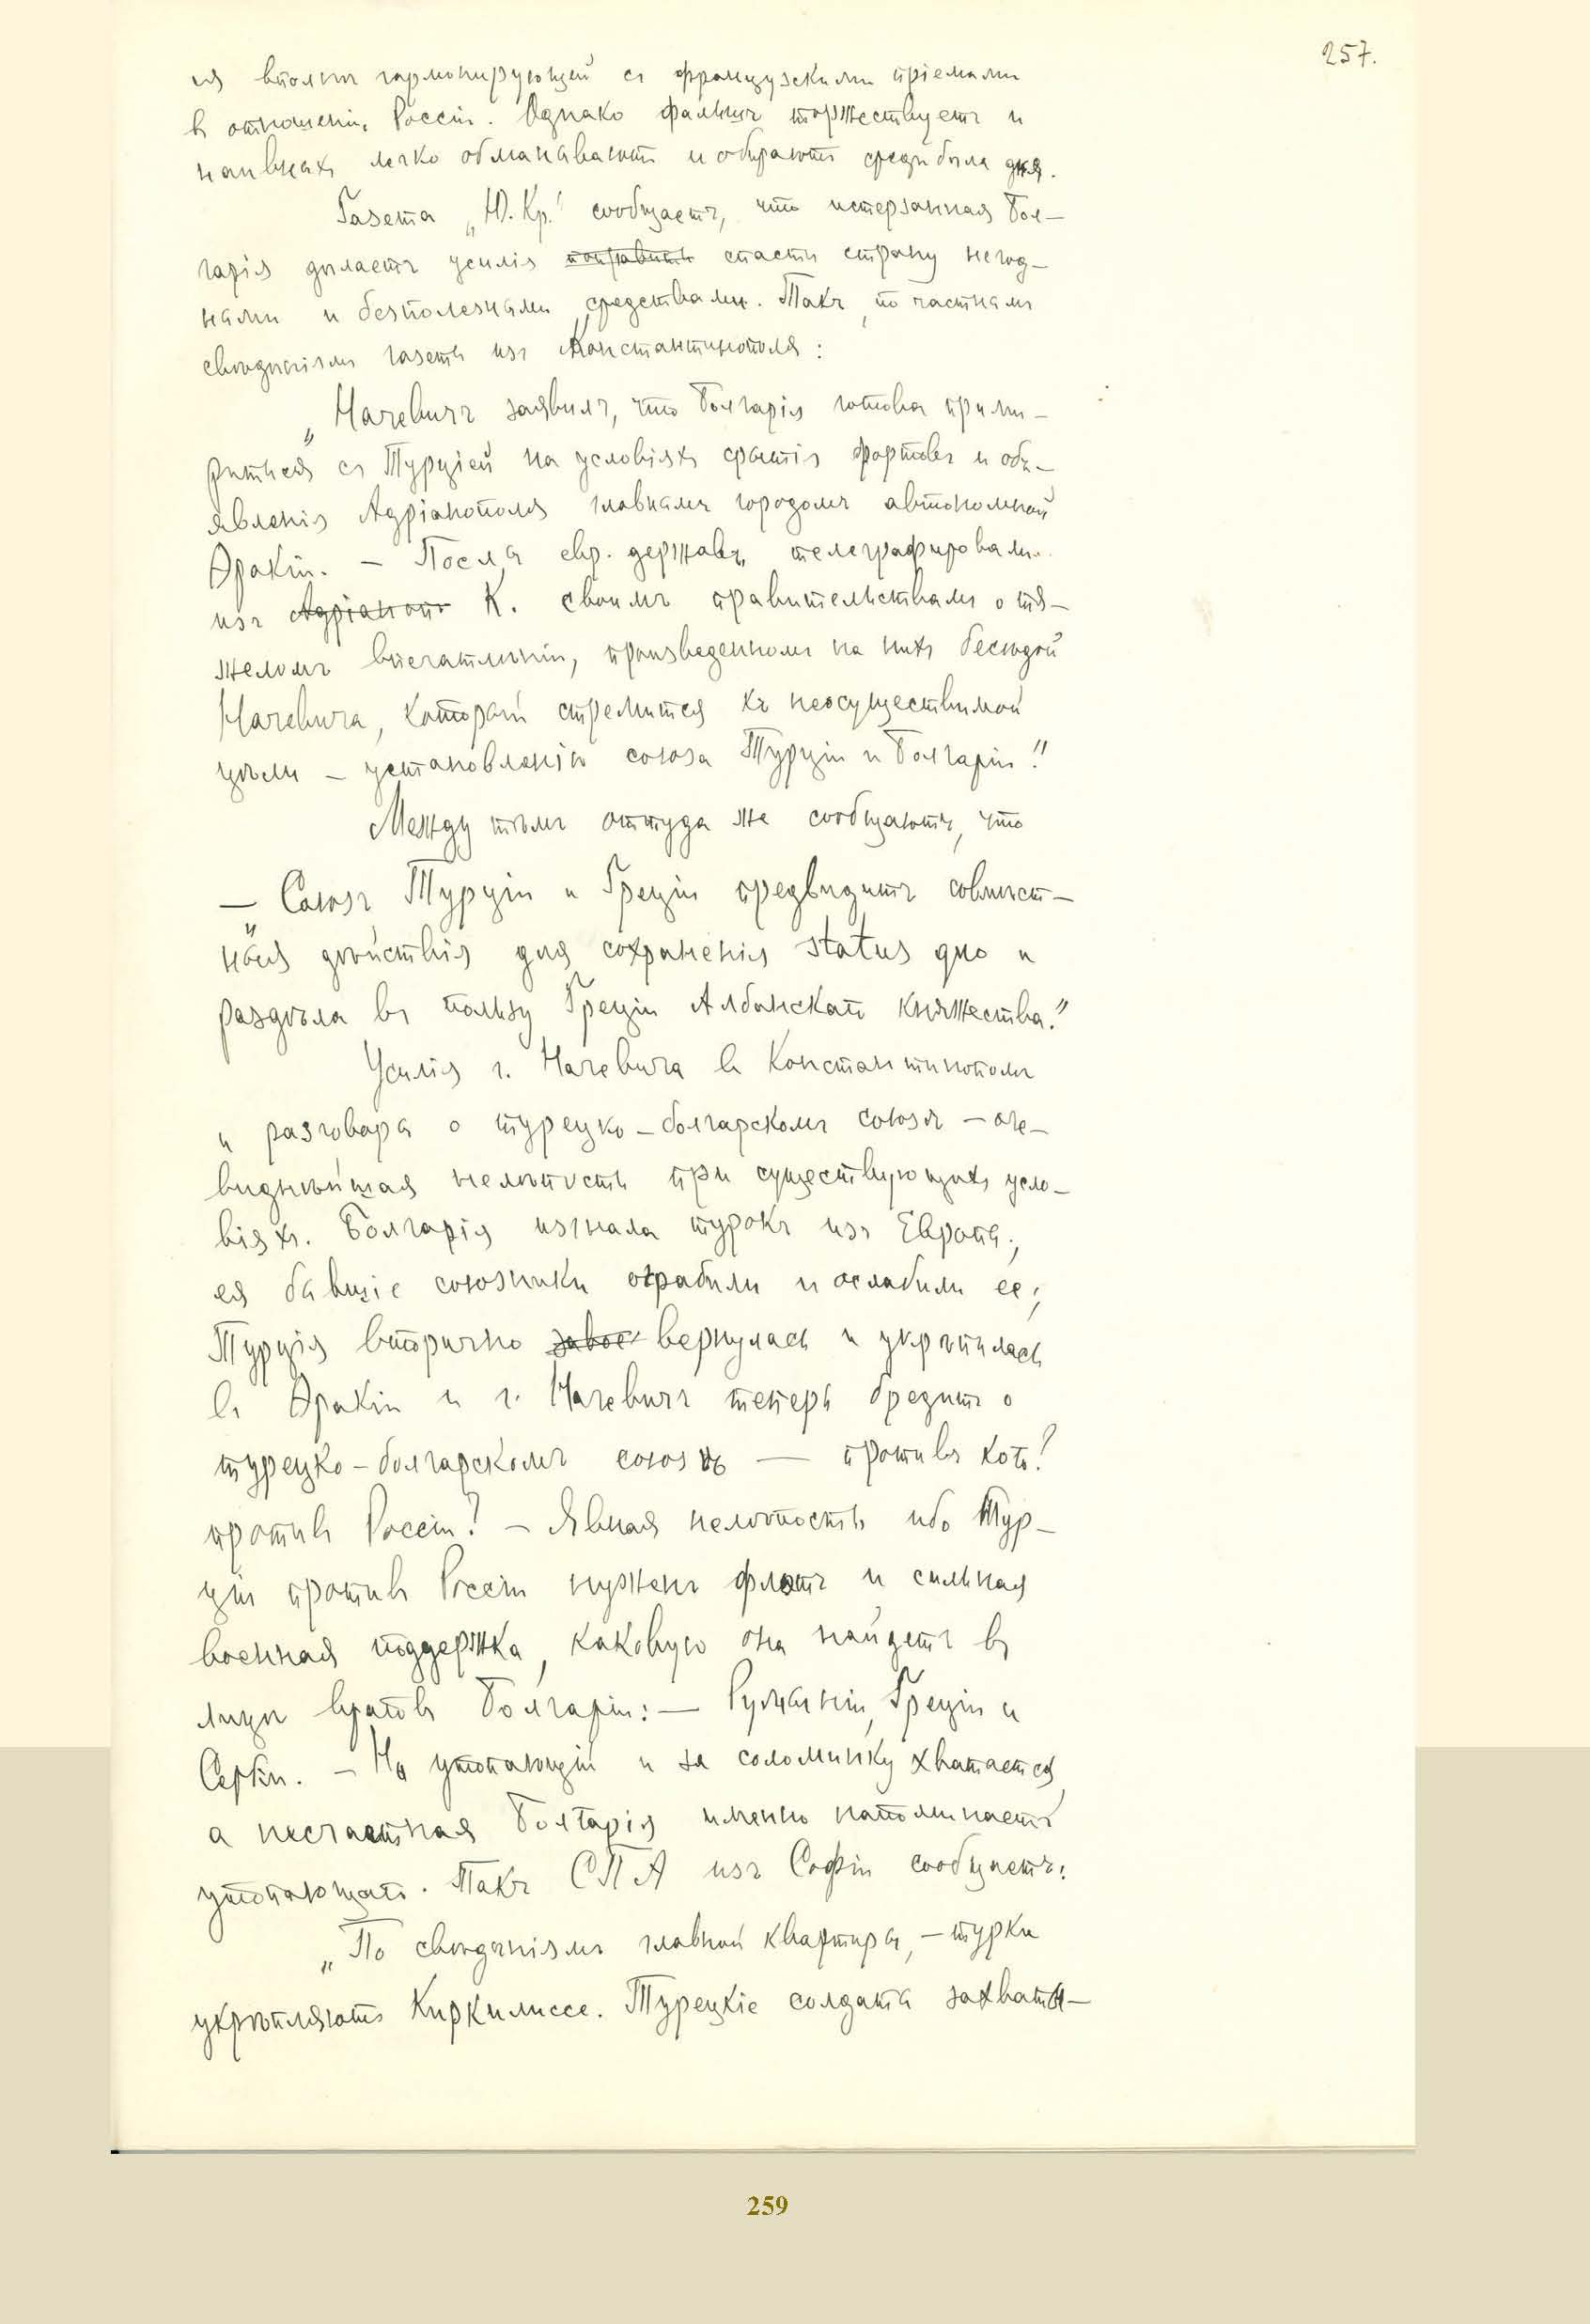 257.
ия вполнѣ гармонирующей съ французскими пріемами
въ отношеніи Россіи. Однако фальшь торжествуетъ и
наивныхъ легко обманываютъ и обираютъ среди бѣла дня.
Газета „Ю. Кр." сообщаетъ, что истерзанная Бол-
гарія дѣлаетъ усилія поправить спасти страну негод-
ными и безполезными средствами. Такъ, по частнымъ
свѣдѣніямъ газеты изъ Константинополя:
„Начевичъ заявилъ, что Болгарія готова прими-
риться съ Турціей на условіяхъ срытія фортовъ и объ-
явленія Адріанополя главнымъ городомъ автономной
Ѳракіи. — Послы евр. державъ телеграфировали
изъ Адріаноп. К. своимъ правительствамъ о тя-
желомъ впечатлѣніи, произведенномъ на нихъ бесѣдой
Начевича, который стремится къ неосуществимой
цѣли — установленію союза Турціи и Болгаріи."
Между тѣмъ оттуда же сообщаютъ, что
— „Союзъ Турціи и Греціи предвидитъ совмѣст-
ныя дѣйствія для сохраненія status quo и
раздѣла въ пользу Греціи Албанскаго княжества."
Усилія г. Начевича въ Константинополѣ
и разговоры о турецко-болгарскомъ союзѣ — оче-
виднѣйшая нелѣпость при существующихъ усло-
віяхъ. Болгарія изгнала турокъ изъ Европы;
ея бывшіе союзники ограбили и ослабили ее;
Турція вторично завое вернулась и укрѣпилась
въ Ѳракіи и г. Начевичъ теперь бредитъ о
турецко-болгарскомъ союзѣ — противъ кого?
противъ Россіи? — Явная нелѣпость ибо Тур-
ціи противъ Россіи нуженъ флотъ и сильная
военная поддержка, каковую она найдетъ въ
лицѣ враговъ Болгаріи: — Румыніи, Греціи и
Сербіи. — Но утопающій и за соломинку хватается,
а несчастная Болгарія именно напоминаетъ
утопающаго. Такъ СПА изъ Софіи сообщаетъ:
„По свѣдѣніямъ главной квартиры, — турки
укрѣпляютъ Киркилиссе. Турецкіе солдаты захваты-
259